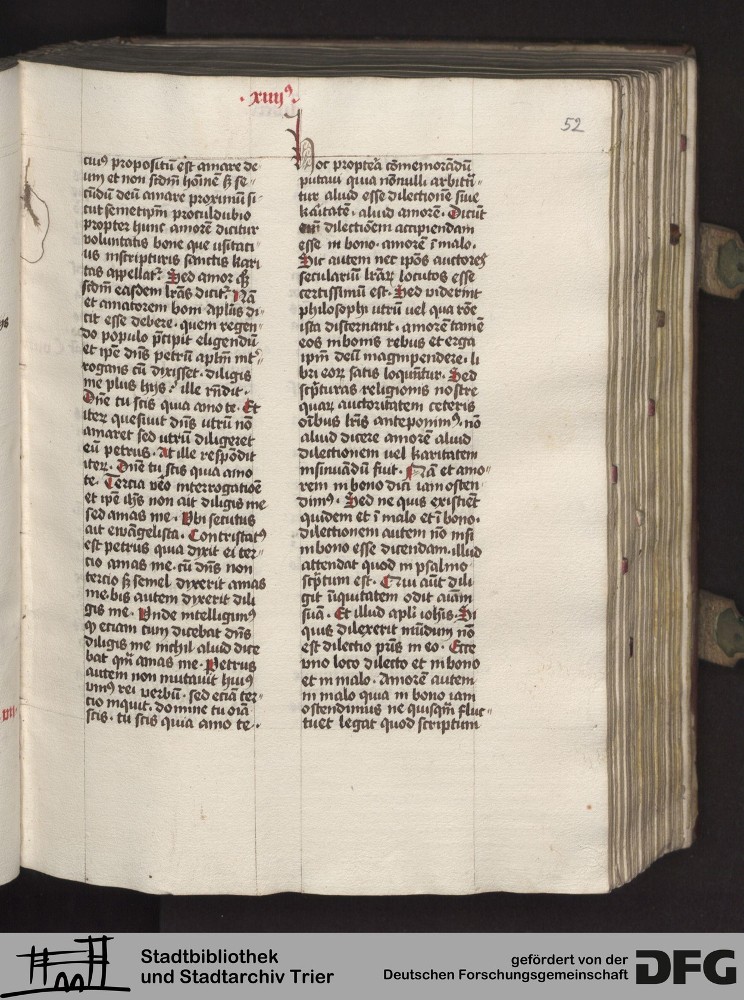 · xiiij⁹ ·
52
cui⁹ propositū est amare de
um et non scdm̄ hoīnē sʒ se-
cūdū deū amare proximū si
cut semetipm̄ proculdubio
propter hunc amorē dicitur
voluntatis bone que usitati
us inscripturis sanctis kari
tas appellat᷑. Sed amor qʒ
scdm̄ easdem lrās dicit᷑. Nā
et amatorem boni apl̄us di-
cit esse debere. quem regen-
do populo p̄cipit eligendū
et ipe dn̄s petrū aplm̄ int̄-
rogans cū dixisset. diligis
me plus hijs? ille rn̄dit.
Dn̄e tu scis quia amo te. Et
iteꝝ quesiuit dn̄s utrū nō
amaret sed utrū diligeret
eū petrus. At ille respōdit
iteꝝ. Dn̄e tu scis quia amo
te. Tercia vēo interrogatioē
et ipe ih̄s non ait diligis me
sed amas me. Vbi secutus
ait ewāgelista. Contristat⁹
est petrus quia dixit ei ter-
cio amas me. cū dn̄s non
tercio sʒ semel dyxerit amas
me. bis autem dyxerit dili
gis me. Vnde intelligim⁹
qꝫ etiam cum dicebat dn̄s
diligis me nichil aliud dice
bat qm̄ amas me. Petrus
autem non mutauit hui⁹
vni⁹ rei verbū. sed eciā ter-
cio inquit. domine tu oīa
scis. tu scis quia amo te.
Hoc proptea cōmemorādū
putaui quia nōnulli arbitrā-
tur aliud esse dilectionē siue
kāitatē. aliud amorē. Dicūt
eī dilectiōem accipiendam
esse in bono. amorē ī malo.
Sic autem nec ipōs auctoreſ
seculariū lrāꝝ locutos esse
certissimū est. Sed viderint
philosophi utrū uel qua rōe
ista discernant. amorē tamē
eos in bonis rebus et erga
ipm̄ deū magnipendere. li
bri eoꝝ satis loqūntur. Sed
scp̄turas religionis nostre
quaꝝ auctoritatem ceteris
oībus lrīs anteponim⁹. nō
aliud dicere amorē aliud
dilectionem uel karitatem
insinuādū fuit. Nā et amo-
rem in bono dici iam osten
dim⁹. Sed ne quis existiēt
quidem et ī malo et ī bono.
dilectionem autem nō nisi
in bono esse dicendam. illud
attendat quod in psalmo
scp̄tum est. Qui aūt dili
git īiquitatem odit aīam
suā. Et illud apl̄i ioh̄is. Si
quis dilexerit mūdum nō
est dilectio pr̄is in eo. Ecce
vno loco dilectio et in bono
et in malo. Amorē autem
in malo quia in bono iam
ostendimus ne quisqm̄ fluc-
tuet legat quod scriptum
Stadtbibliothek
und Stadtarchiv Trier
gefördert von der
Deutschen Forschungsgemeinschaft
DFG